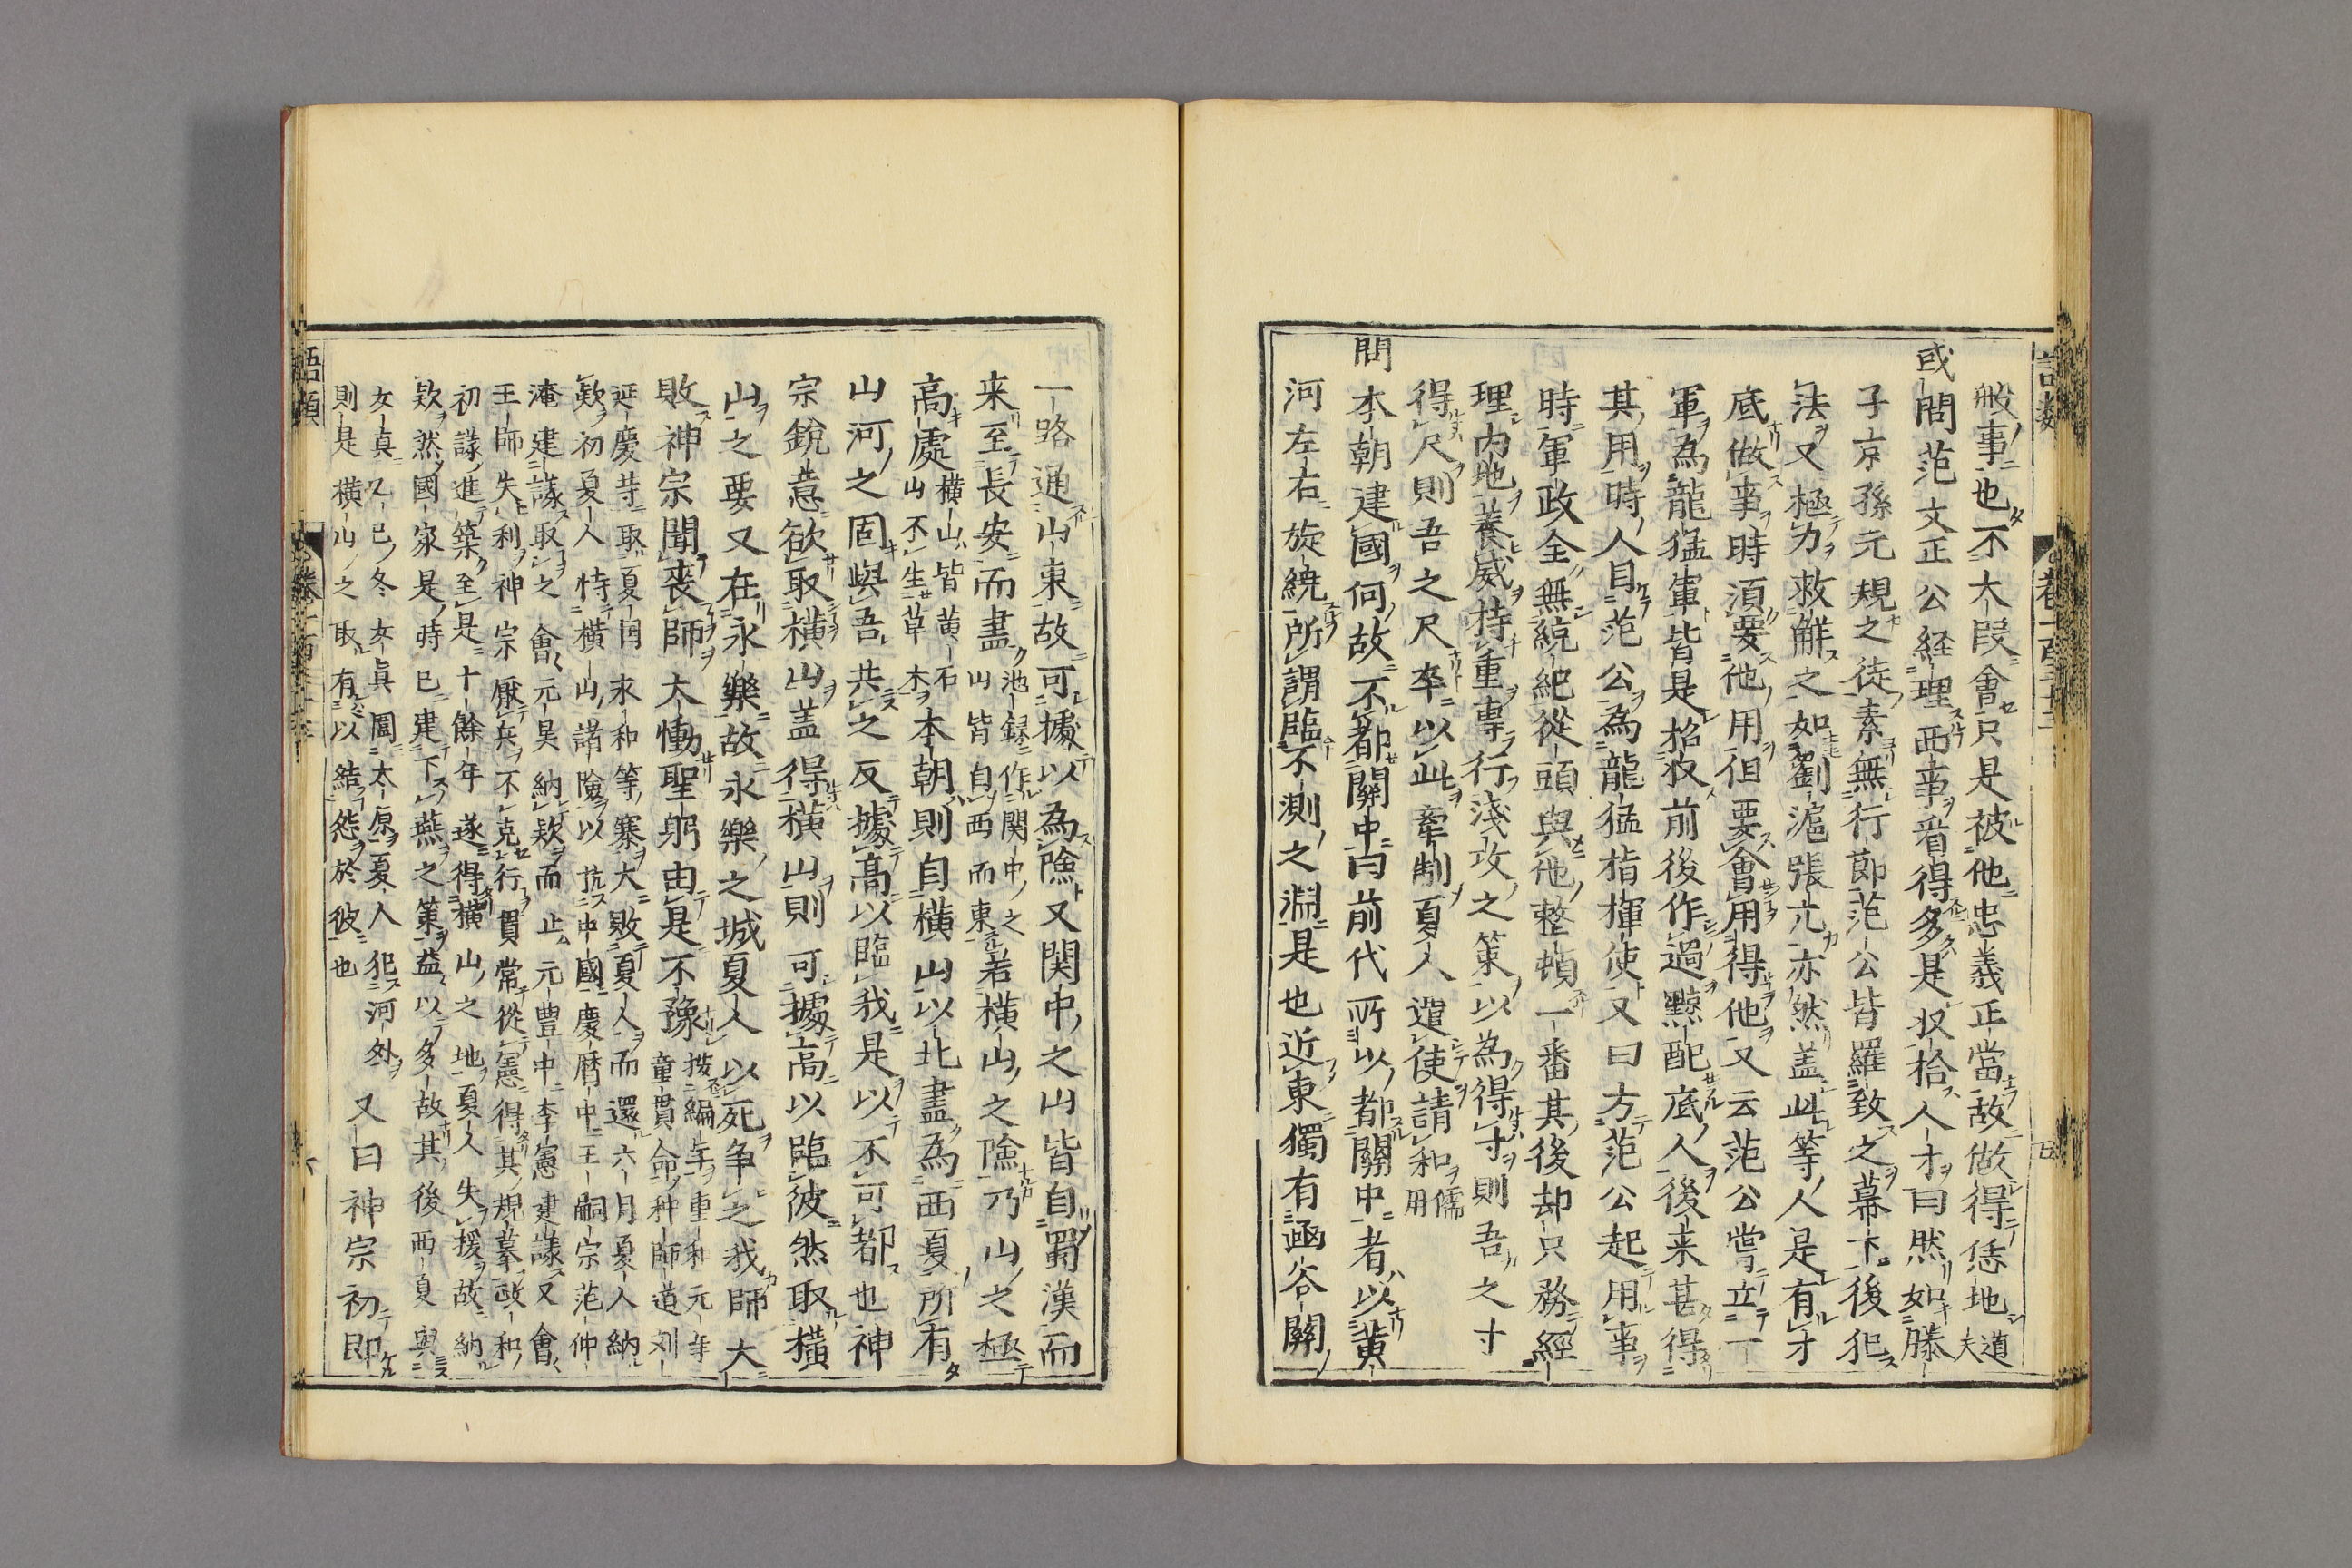 語類　卷一百三十三　五
般事也不大段會只是被他忠義正當故做得恁地道夫
或問范文正公経理西事㸔得多是収拾人才曰然如滕
子京孫元規之徒素無行節范公皆羅致之幕下後犯
法又極力救觧之如劉滬張亢亦然盖此等人是有才
底做事時須要他用但要會用得他又云范公嘗立一
軍為龍猛軍皆是招収前後作過黥配底人後来甚得
其用時人目范公為龍猛指揮使又曰方范公起用事
時軍政全無統紀從頭與他整頓一番其後却只務經
理内地養威持重專行淺攻之策以為得寸則吾之寸
得尺則吾之尺卒以此牽制夏人遣使請和儒用
問本朝建國何故不都關中曰前代所以都關中者以黄
河左右旋繞所謂臨不測之淵是也近東獨有函谷關
一路通山東故可據以為險又関中之山皆自蜀漢而
来至長安而盡池録作関中之山皆自西而東若横山之險乃山之極
高處横山皆黄石山不生草木本朝則自横山以北盡為西夏所有
山河之固與吾共之反據高以臨我是以不可都也神
宗銳意欲取横山盖得横山則可據高以臨彼然取横
山之要又在永樂故永樂之城夏人以死争之我師大
敗神宗聞喪師大慟聖躬由是不豫按編年重和元年童貫命种師道刘
延慶䒭取夏囯永和等寨大敗夏人而還六月夏人納
欵初夏人恃横山諸險以抗中國慶暦中王嗣宗范仲
淹建議取之會元昊納欵而止元豊中李憲建議又會
王師失利神宗厭兵不克行貫常從憲得其規摹政和
初議進築至是十餘年遂得横山之地夏人失援故納
欵然國家是時已建下燕之策益以多故其後西夏與
女真又已冬女真圍太原夏人犯河外
則是横山之取有以結怨於彼也
又曰神宗初即
語類　卷一百三十三　六